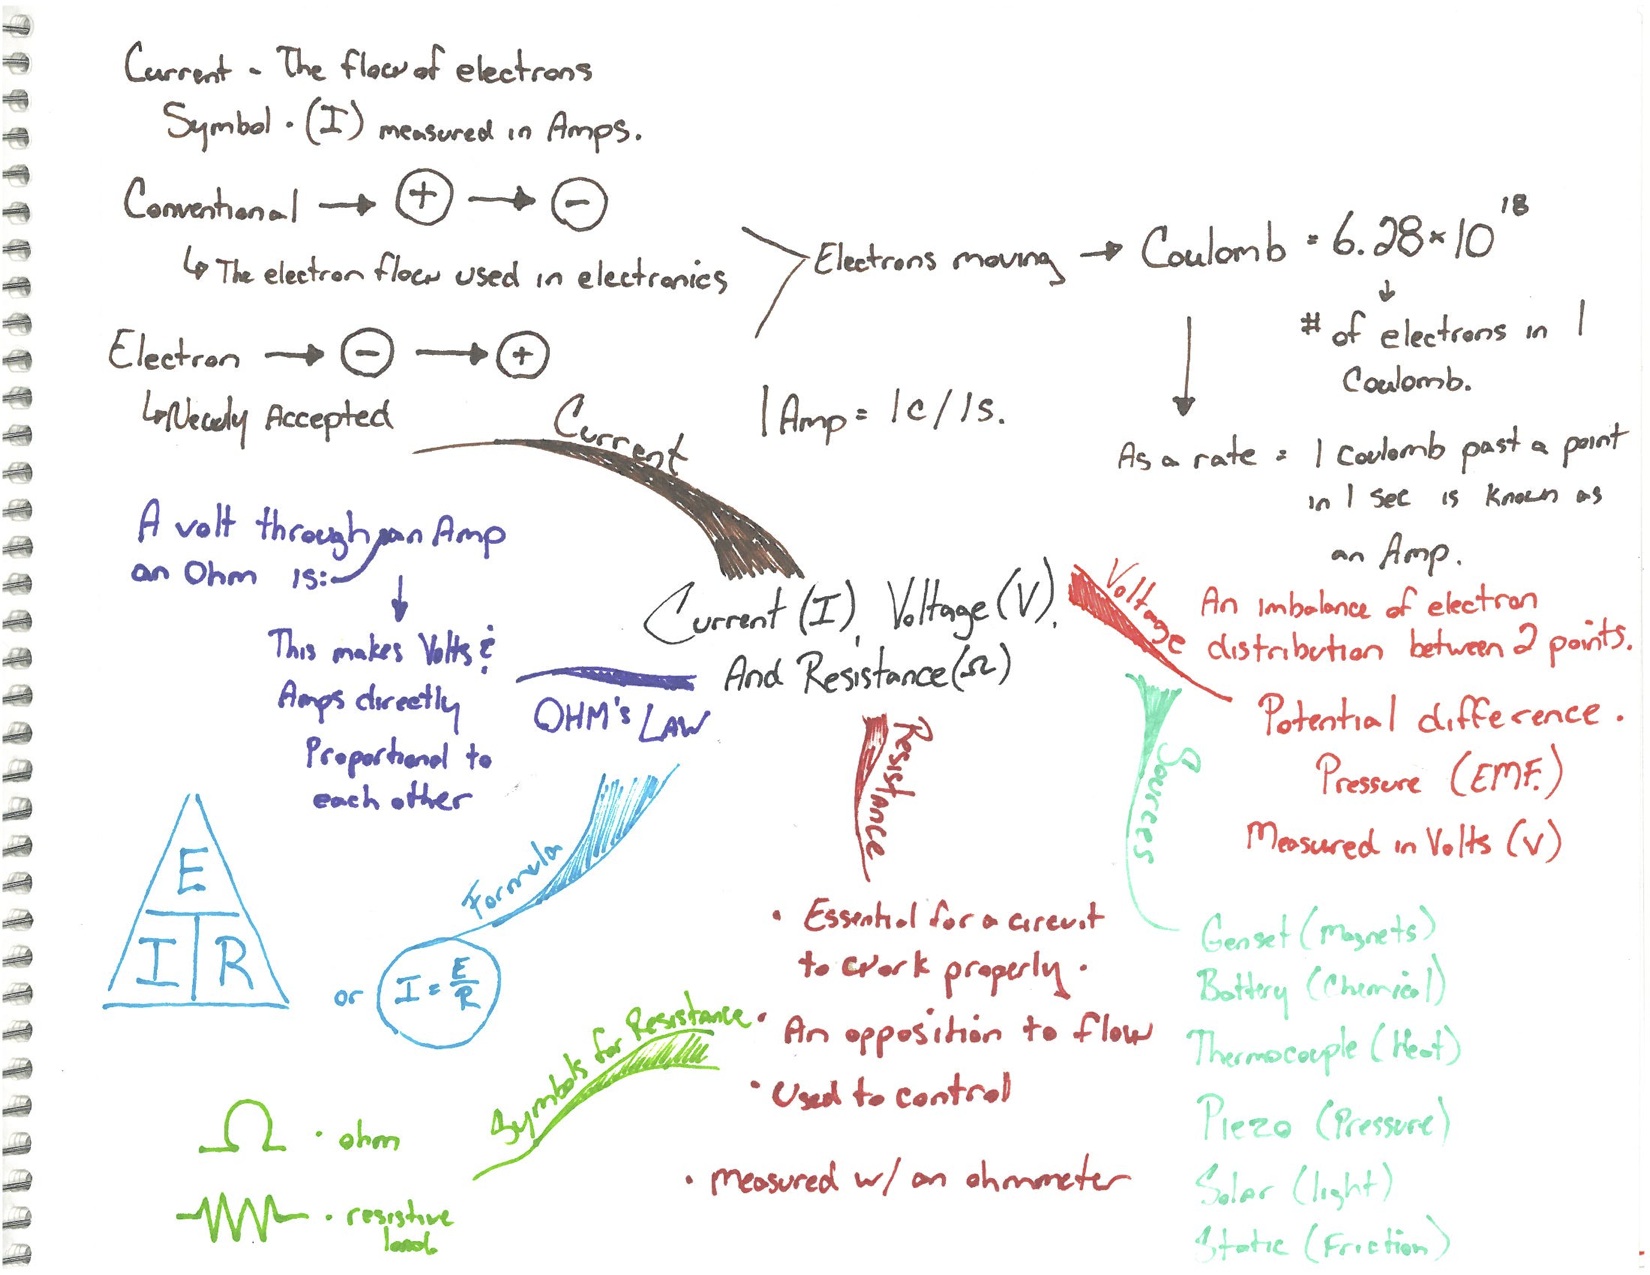 Current - The flow of electrons
Symbol - (I) measured in Amps.
Conventional → + → −
↳ The electron flow used in electronics
Electron → − → +
↳ Newly Accepted
Electrons moving → Coulomb = 6.28×10¹⁸
# of electrons in 1
Coulomb.
1 Amp = 1c/1s.
As a rate = 1 coulomb past a point
in 1 sec is known as
an Amp.
Current
Current (I), Voltage (V),
And Resistance (Ω)
A volt through an Amp
an Ohm is:
This makes Volts &
Amps directly
Proportional to
each other
OHM's LAW
Voltage
An imbalance of electron
distribution between 2 points.
Potential difference.
Pressure (EMF.)
Measured in Volts (V)
Sources
Genset (Magnets)
Battery (Chemical)
Thermocouple (Heat)
Piezo (Pressure)
Solar (light)
Static (Friction)
Resistance
• Essential for a circuit
to work properly.
• An opposition to flow
• Used to control
• measured w/ an ohmmeter
Formula
E
I R
or I = E/R
Symbols for Resistance
Ω • ohm
• resistive
load.